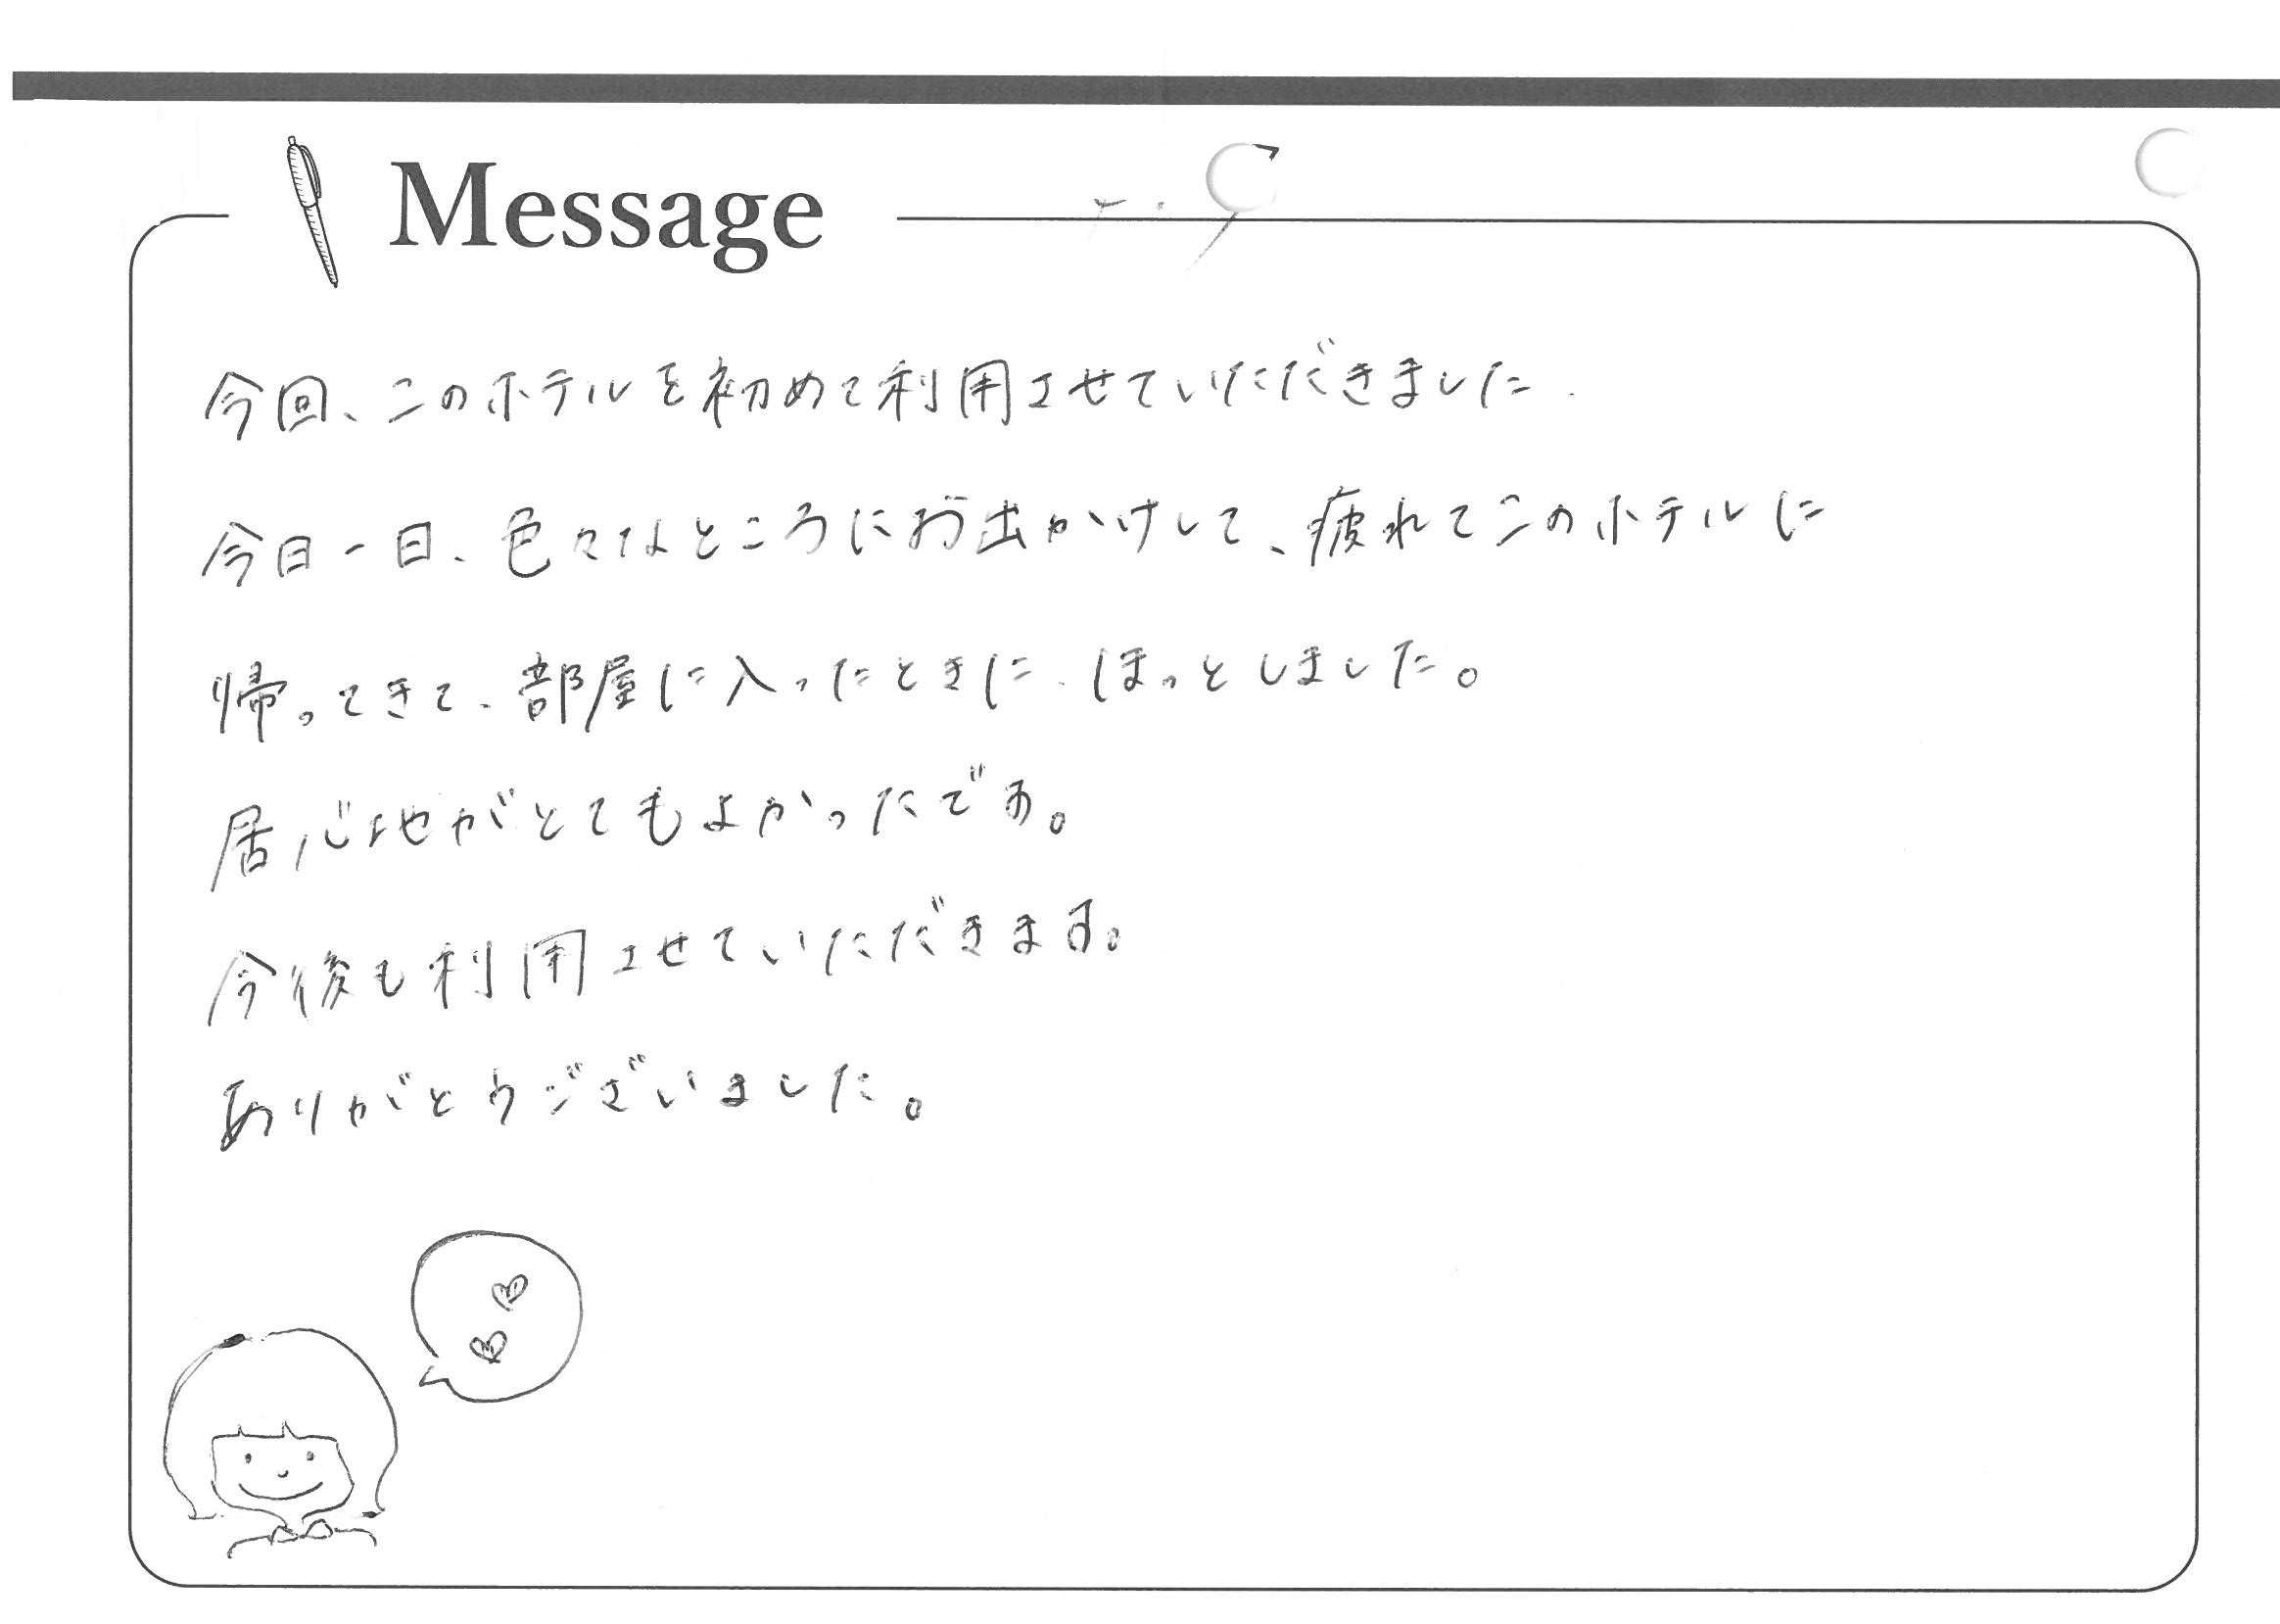 Message
今回、このホテルを初めて利用させていただきました.
今日一日、色々なところにお出かけして、疲れてこのホテルに
帰ってきて、部屋に入ったときに、ほっとしました。
居心地がとてもよかったです。
今後も利用させていただきます。
ありがとうございました。